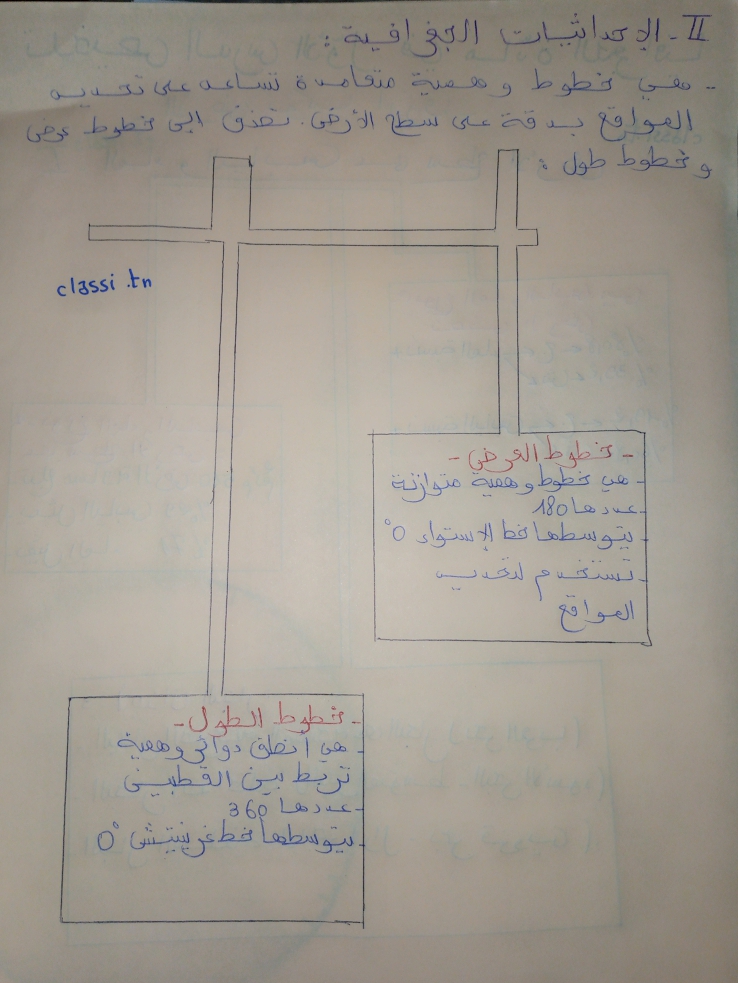 II - الإحداثيات الجغرافية :
- هي خطوط وهمية متعامدة تساعد على تحديد
المواقع بدقة على سطح الأرض. تصنف الى خطوط عرض
و خطوط طول :
classi.tn
- خطوط العرض -
- هي خطوط وهمية متوازنة
- عددها 180
- يتوسطها خط الإستواء 0°
- تستخدم لتحديد
المواقع
- خطوط الطول -
- هي أنصف دوائر وهمية
تربط بين القطبين
- عددها 360
- يتوسطها خط غرينيتش 0°